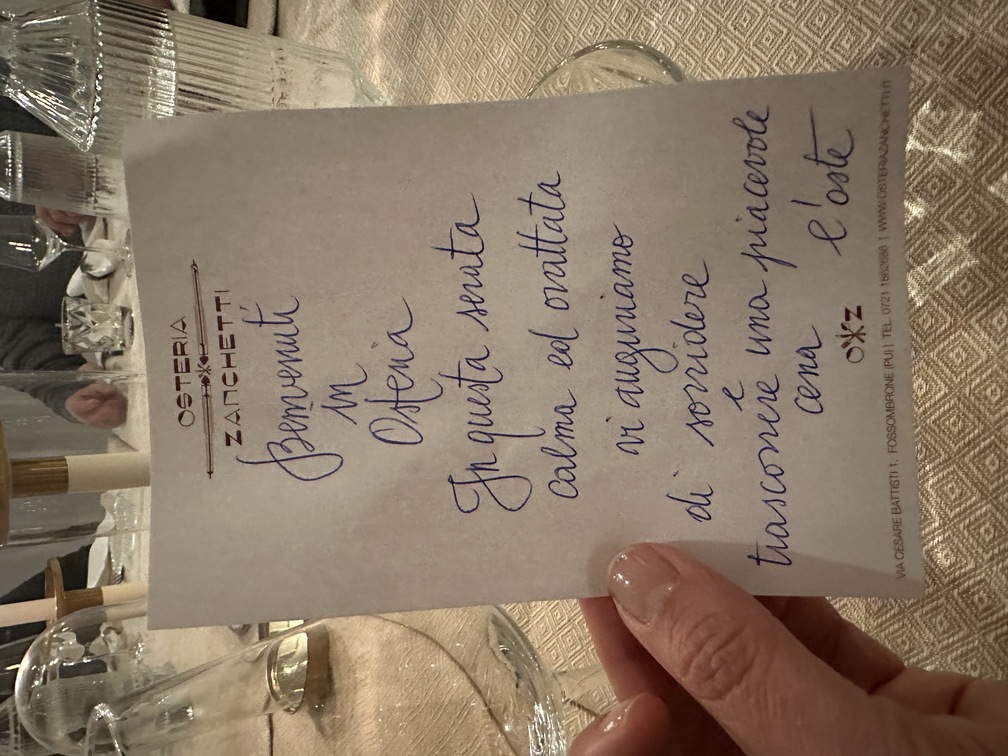 OSTERIA
ZANCHETTI
Benvenuti
in
Osteria
In questa serata
calma ed ovattata
vi auguriamo
di sorridere
e
trascorrere una piacevole
cena
l'oste
OZ
VIA CESARE BATTISTI 1, FOSSOMBRONE (PU) | TEL. 0721 1802698 | WWW.OSTERIAZANCHETTI.IT